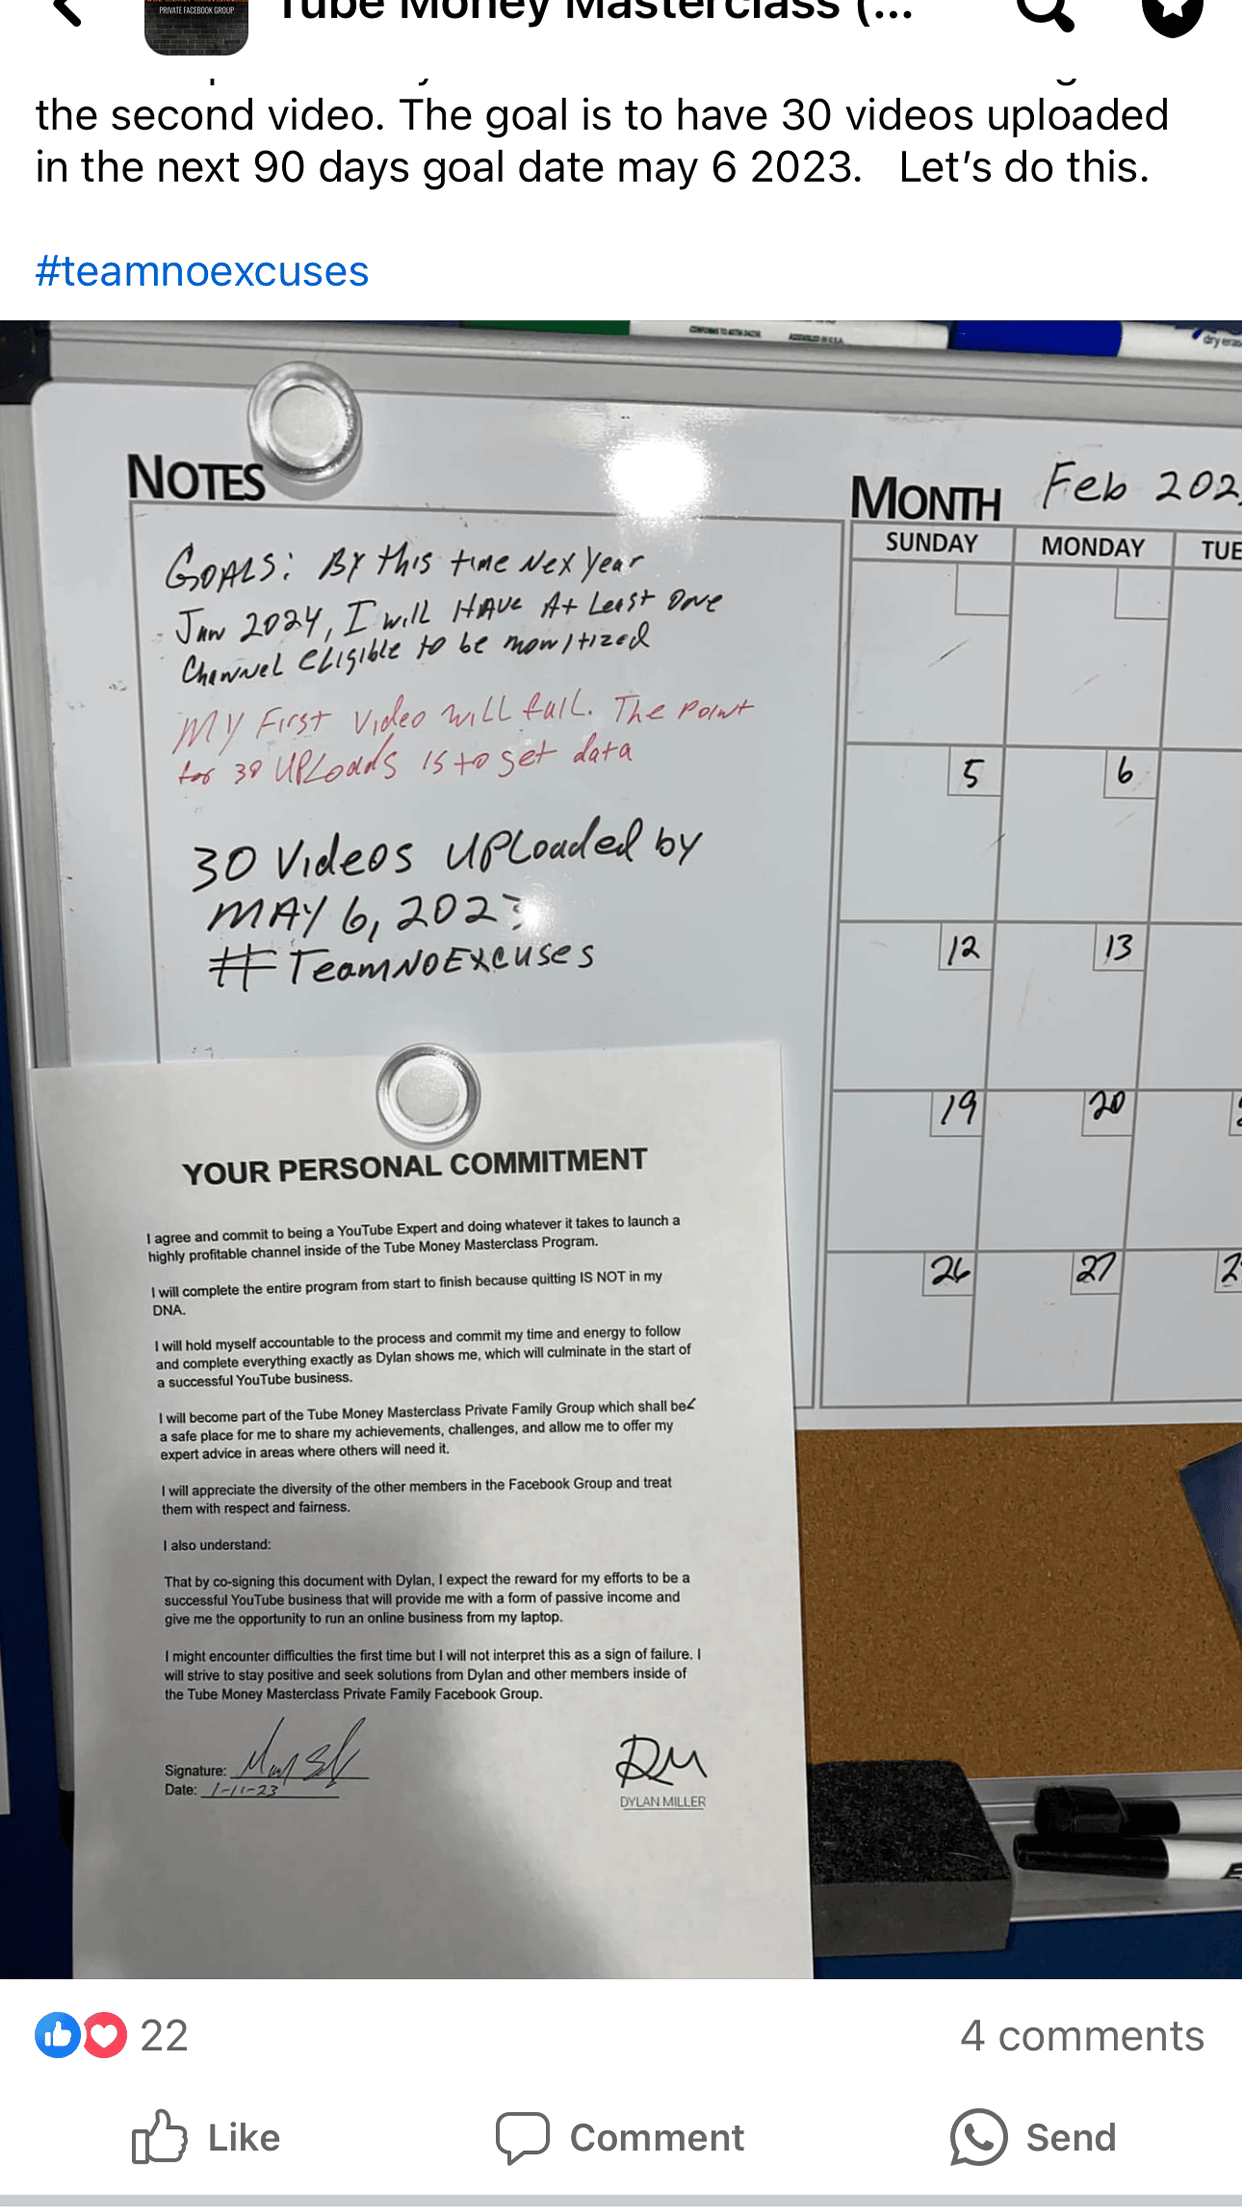 PRIVATE FACEBOOK GROUP
Tube Money Masterclass (...
the second video. The goal is to have 30 videos uploaded
in the next 90 days goal date may 6 2023. Let's do this.
#teamnoexcuses
CONFORMS TO ASTM D4236
ASSEMBLED IN U.S.A.
dry eras
NOTES
GOALS: By this time Nex Year
Jan 2024, I will HAVE At Least One
Channel eligible to be monitized
My First Video will fail. The Point
for 30 UPLoads is to get data
30 Videos UPLoaded by
MAY 6, 2023
#TeamNoExcuses
MONTH Feb 202
SUNDAY MONDAY TUE
5 6
12 13
19 20 2
26 27 2
YOUR PERSONAL COMMITMENT
I agree and commit to being a YouTube Expert and doing whatever it takes to launch a
highly profitable channel inside of the Tube Money Masterclass Program.
I will complete the entire program from start to finish because quitting IS NOT in my
DNA.
I will hold myself accountable to the process and commit my time and energy to follow
and complete everything exactly as Dylan shows me, which will culminate in the start of
a successful YouTube business.
I will become part of the Tube Money Masterclass Private Family Group which shall be
a safe place for me to share my achievements, challenges, and allow me to offer my
expert advice in areas where others will need it.
I will appreciate the diversity of the other members in the Facebook Group and treat
them with respect and fairness.
I also understand:
That by co-signing this document with Dylan, I expect the reward for my efforts to be a
successful YouTube business that will provide me with a form of passive income and
give me the opportunity to run an online business from my laptop.
I might encounter difficulties the first time but I will not interpret this as a sign of failure. I
will strive to stay positive and seek solutions from Dylan and other members inside of
the Tube Money Masterclass Private Family Facebook Group.
Signature:
Date: 1-11-23
DM
DYLAN MILLER
22
4 comments
Like Comment Send